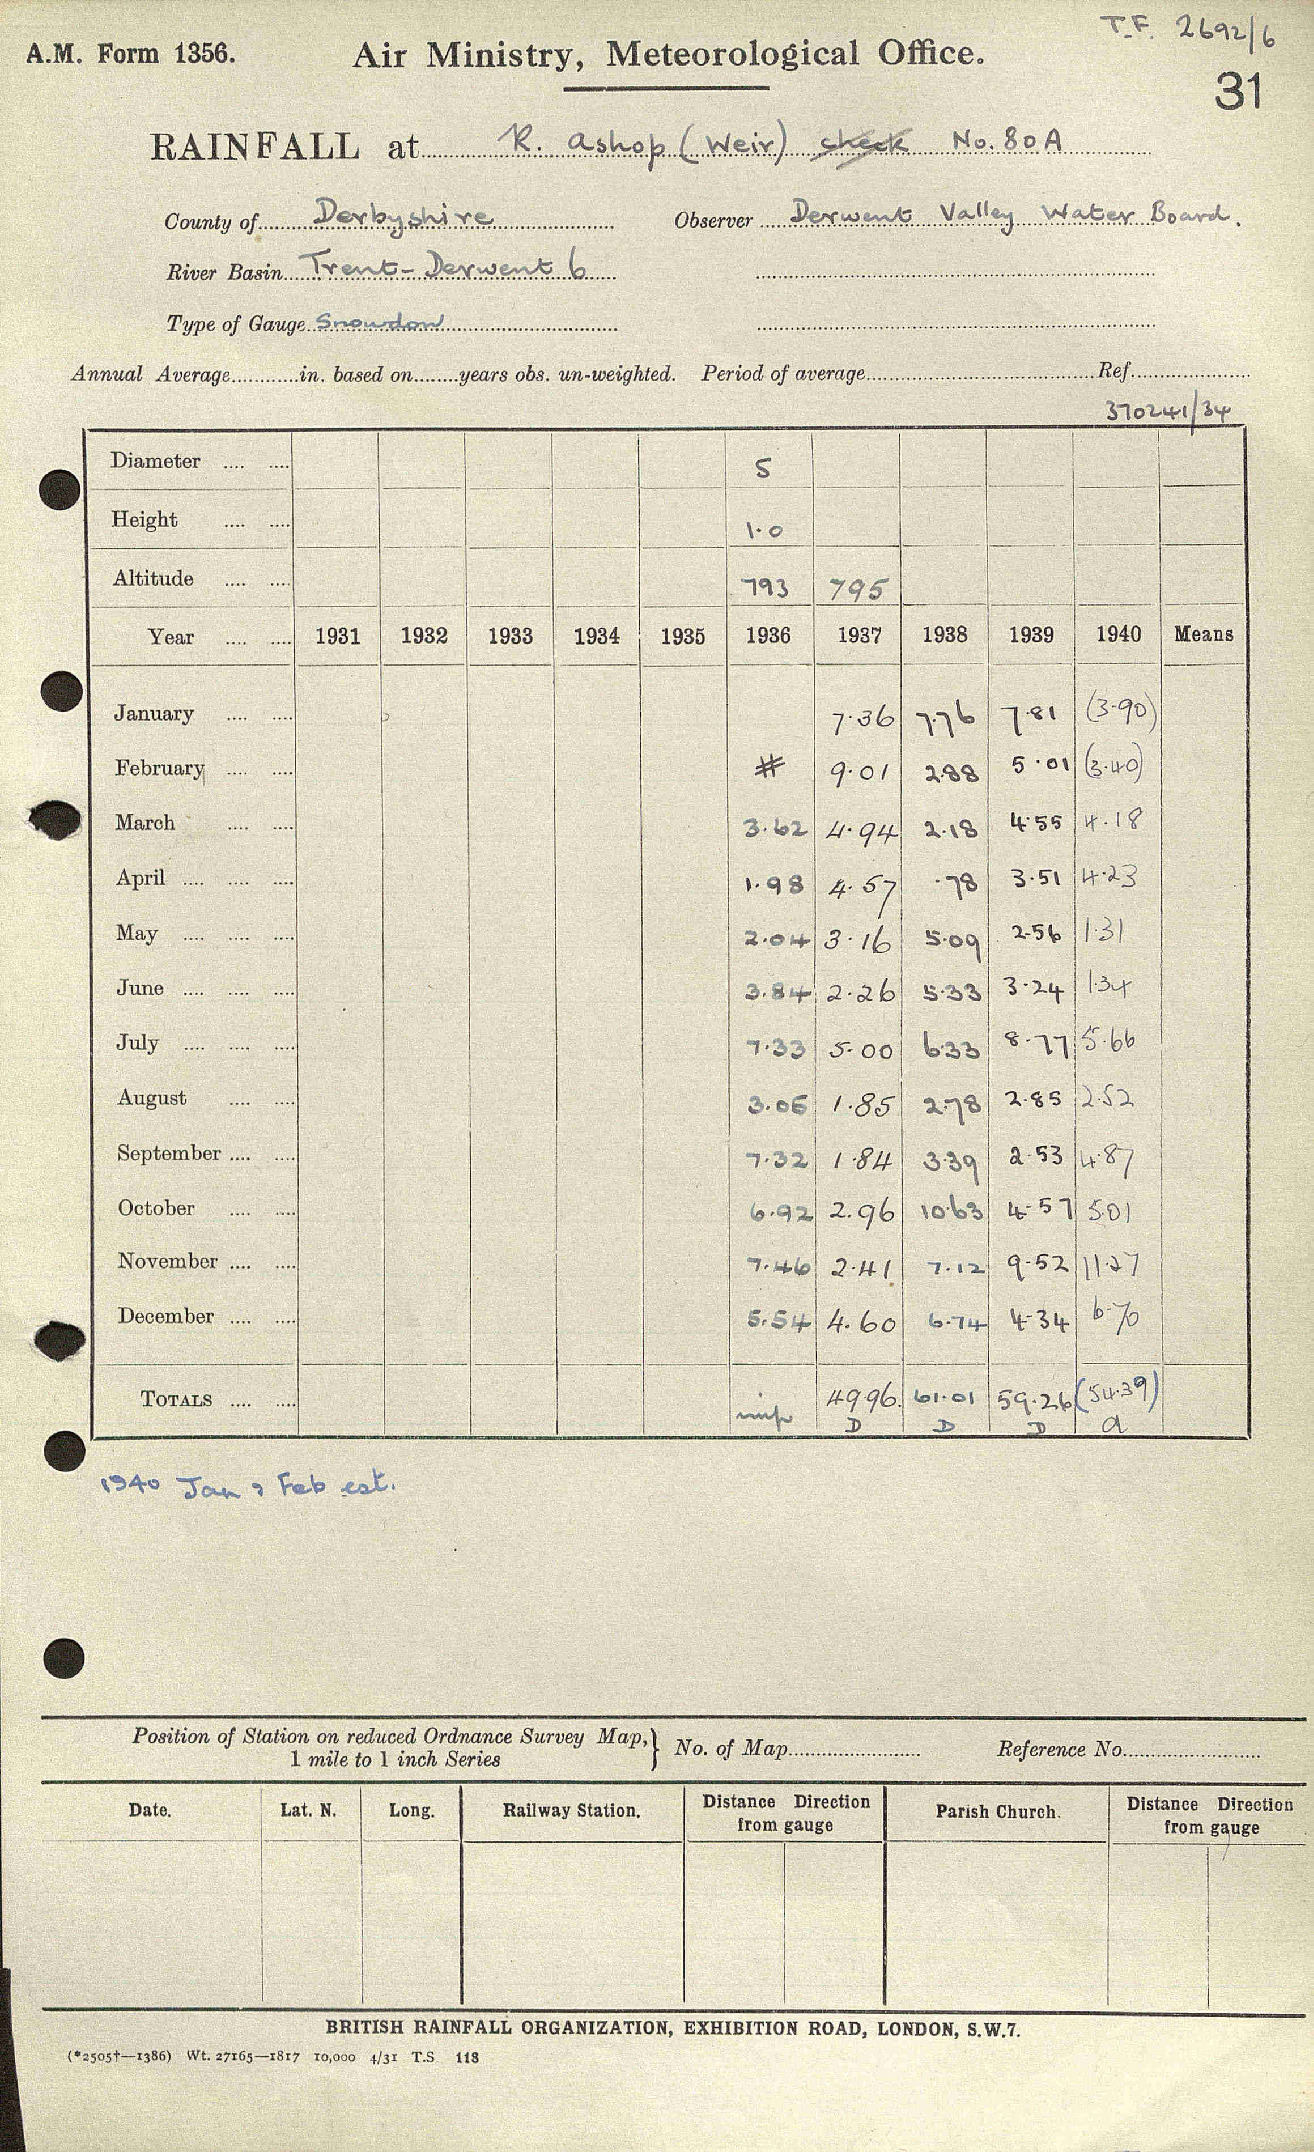 T.F. 2692/6
A.M. Form 1356. Air Ministry, Meteorological Office.
31
RAINFALL at R. Ashop (Weir) check No. 80A
County of Derbyshire Observer Derwent Valley Water Board.
River Basin Trent-Derwent 6
Type of Gauge Snowdon
Annual Average............in. based on........years obs. un-weighted. Period of average.................... Ref....................
370241/34
Diameter .... .... 5
Height .... .... 1.0
Altitude .... .... 793 795
Year .... .... 1931 1932 1933 1934 1935 1936 1937 1938 1939 1940 Means
January .... .... 7.36 7.76 7.81 (3.90)
February .... .... # 9.01 2.88 5.01 (3.40)
March .... .... 3.62 4.94 2.18 4.55 4.18
April .... .... .... 1.98 4.57 .78 3.51 4.23
May .... .... .... 2.04 3.16 5.09 2.56 1.31
June .... .... .... 3.84 2.26 5.33 3.24 1.34
July .... .... .... 7.33 5.00 6.33 8.77 5.66
August .... .... 3.06 1.85 2.78 2.85 2.52
September .... .... 7.32 1.84 3.39 2.53 4.87
October .... .... 6.92 2.96 10.63 4.57 5.01
November .... .... 7.46 2.41 7.12 9.52 11.27
December .... .... 5.54 4.60 6.74 4.34 6.70
TOTALS .... .... imp 49.96 61.01 59.26 (54.39)
D D D a
1940 Jan & Feb est.
Position of Station on reduced Ordnance Survey Map, } No. of Map........................ Reference No........................
1 mile to 1 inch Series
Date. Lat. N. Long. Railway Station. Distance Direction from gauge Parish Church. Distance Direction from gauge
BRITISH RAINFALL ORGANIZATION, EXHIBITION ROAD, LONDON, S.W.7.
(*2505†—1386) Wt. 27165—1817 10,000 4/31 T.S 118